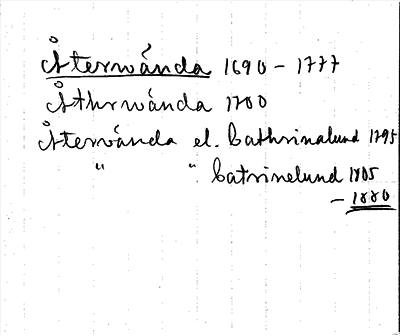 Återvånda 1690 - 1777
Åthrvånda 1700
Återvånda el. Cathrinalund 1795
" " Catrinelund 1805
- 1880